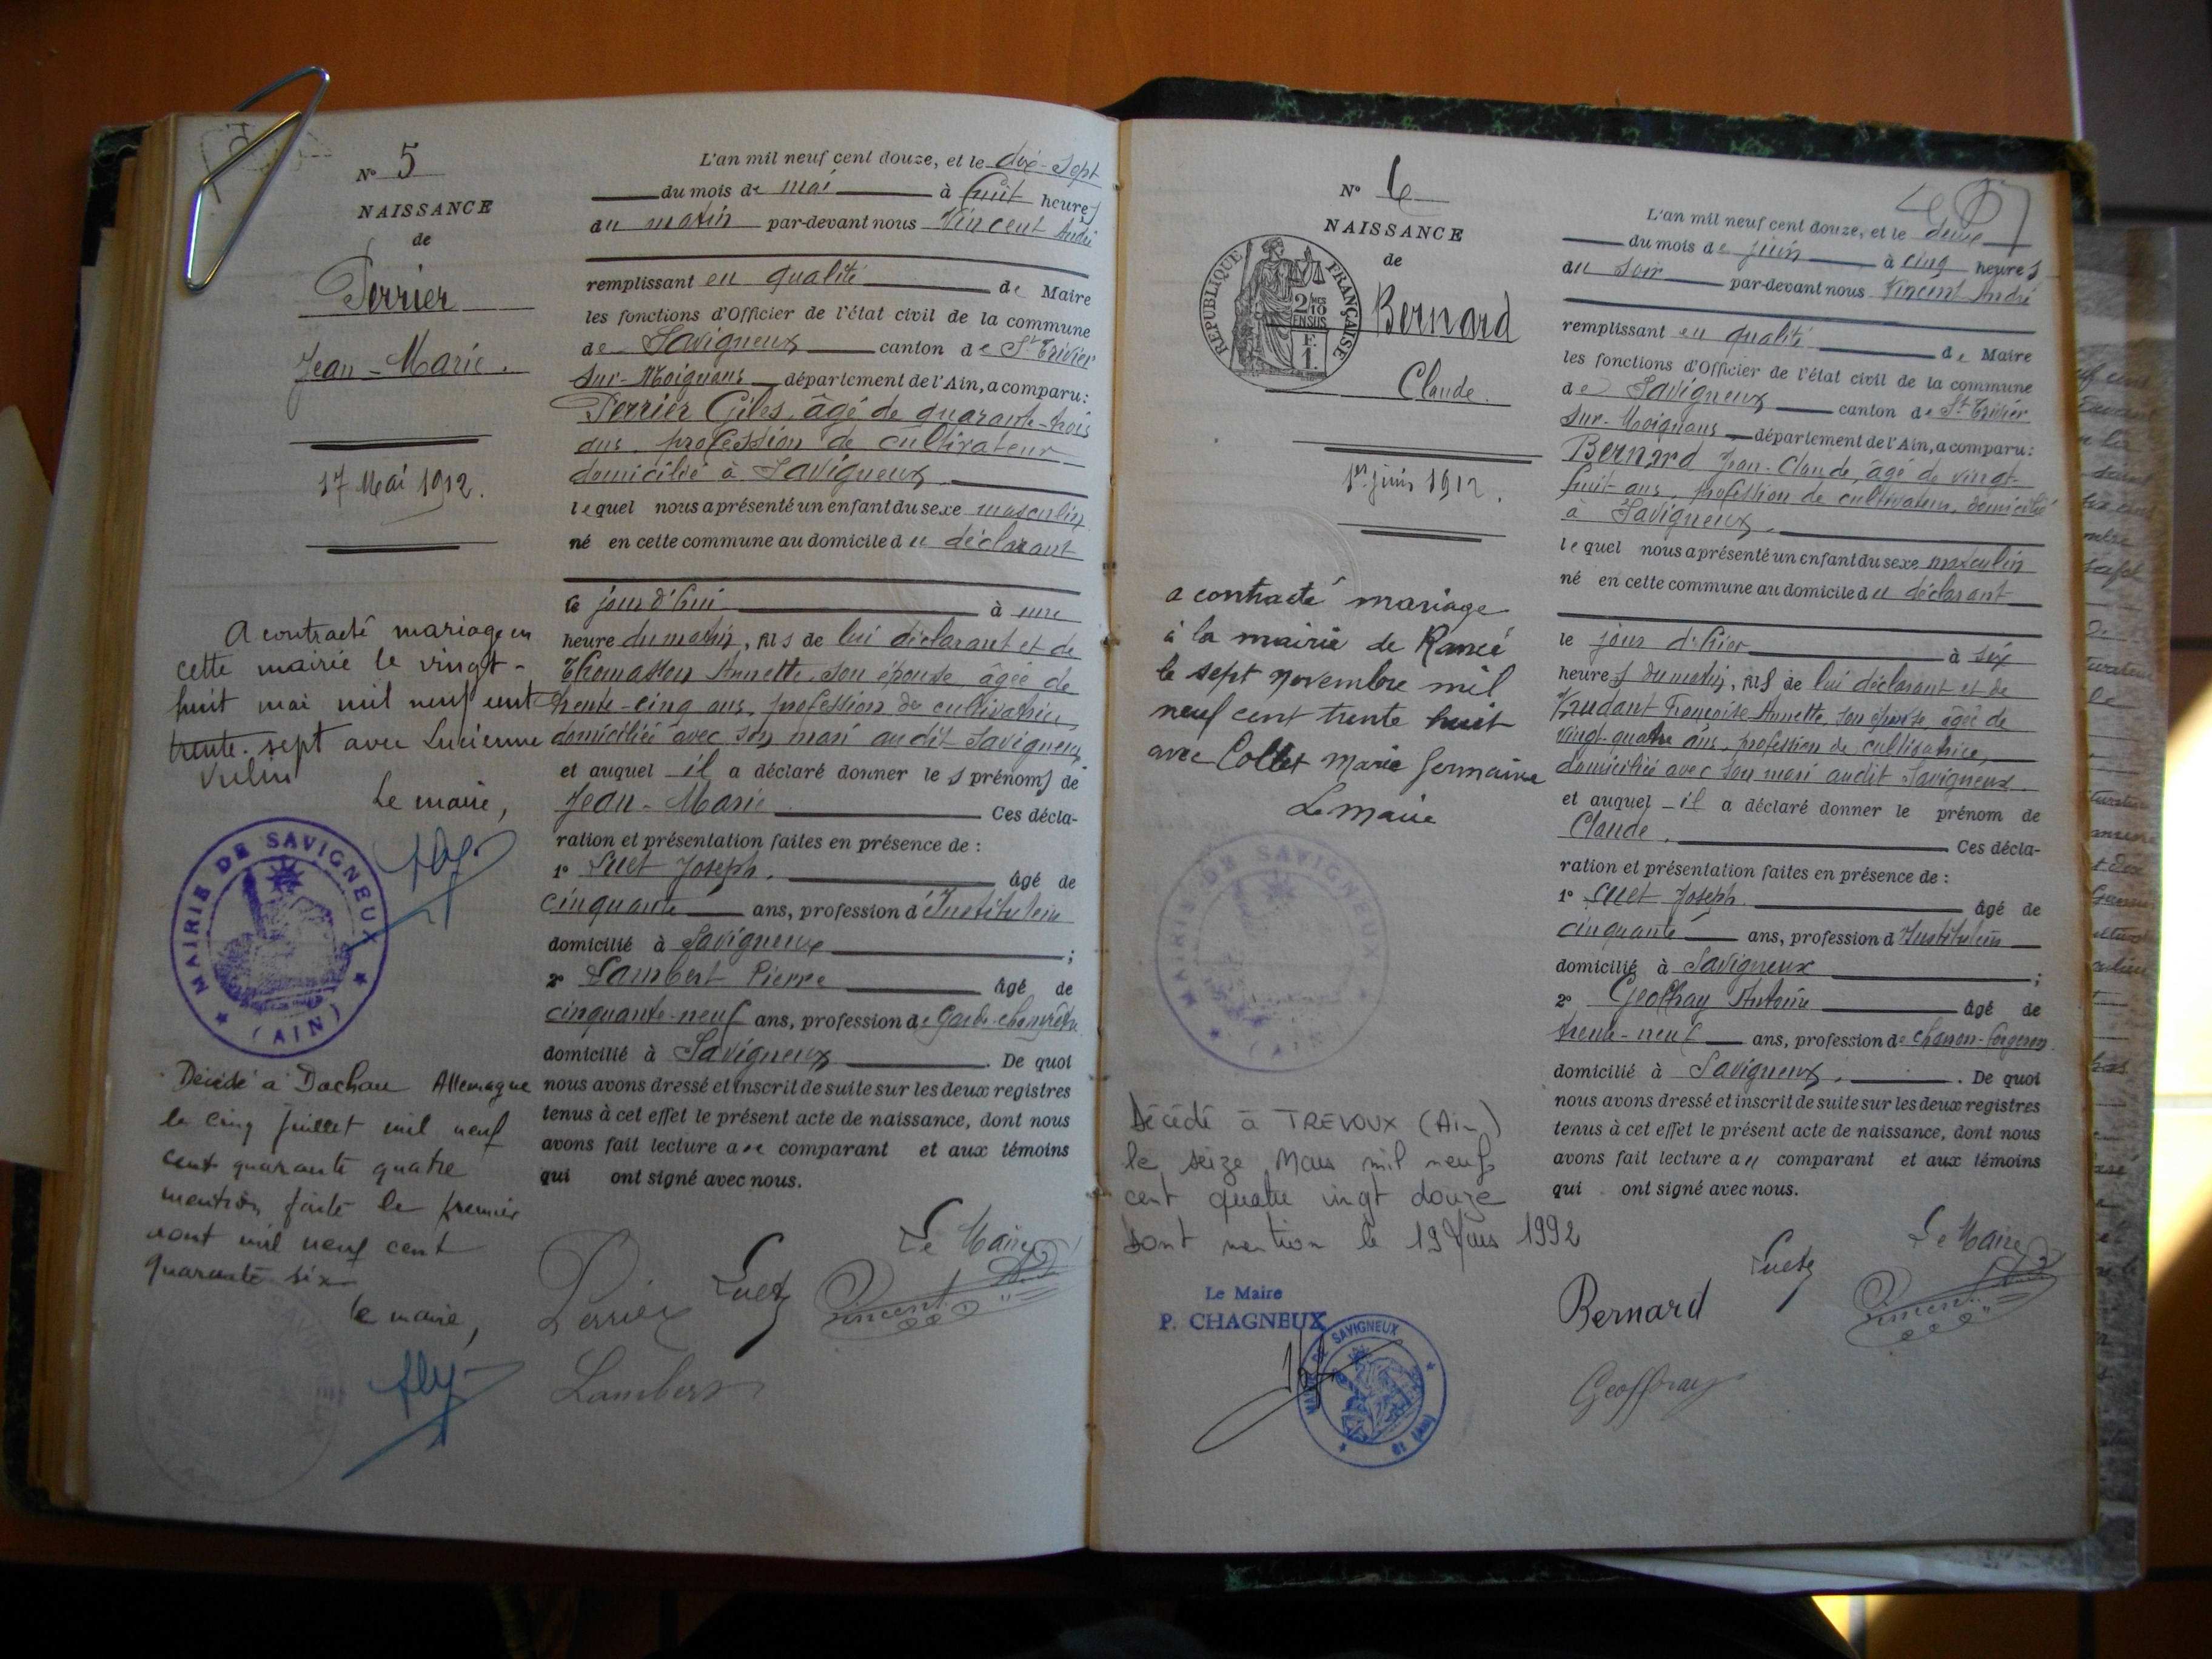 N° 5
NAISSANCE
de
Perrier
Jean-Marie.
17 Mai 1912.
A contracté mariage en
cette mairie le vingt-
huit mai mil neuf cent
trente-sept avec Lucienne
Le maire,
MAIRIE DE SAVIGNEUX
(AIN)
Décédé à Dachau Allemagne
le cinq juillet mil neuf
cent quarante quatre
mention faite le premier
août mil neuf cent
quarante six
le maire,
L'an mil neuf cent douze, et le dix-sept
du mois de mai à huit heures
du matin par-devant nous Vincent André
remplissant en qualité de Maire
les fonctions d'Officier de l'état civil de la commune
de Savigneux canton de St Trivier
sur-Moignans département de l'Ain, a comparu:
Perrier Giles, âgé de quarante-trois
ans, profession de cultivateur
domicilié à Savigneux
lequel nous a présenté un enfant du sexe masculin
né en cette commune au domicile du déclarant
ce jourd'hui à une
heure du matin, fils de lui déclarant et de
Thomasson Annette, son épouse âgée de
trente-cinq ans, profession de cultivatrice,
domiciliée avec son mari audit Savigneux,
et auquel il a déclaré donner les prénoms de
Jean-Marie Ces décla-
ration et présentation faites en présence de :
1° Luet Joseph, âgé de
cinquante ans, profession d'Instituteur
domicilié à Savigneux ;
2° Lambert Pierre âgé de
cinquante-neuf ans, profession de Garde-champêtre
domicilié à Savigneux. De quoi
nous avons dressé et inscrit de suite sur les deux registres
tenus à cet effet le présent acte de naissance, dont nous
avons fait lecture au comparant et aux témoins
qui ont signé avec nous.
Le Maire
Perrier Luet Vincent
Lambert
N° 6
NAISSANCE
de
RÉPUBLIQUE FRANÇAISE
2/10 EN SUS
F. 1.
Bernard
Claude.
1er juin 1912.
a contracté mariage
à la mairie de Rancé
le sept novembre mil
neuf cent trente huit
avec Collet Marie Germaine
Le maire
MAIRIE DE SAVIGNEUX
Décédé à TREVOUX (Ain)
le seize Mars mil neuf
cent quatre vingt douze
Dont mention le 19 Mars 1992
Le Maire
P. CHAGNEUX
SAVIGNEUX
L'an mil neuf cent douze, et le deux
du mois de juin à cinq heures
du soir par-devant nous Vincent André
remplissant en qualité de Maire
les fonctions d'Officier de l'état civil de la commune
de Savigneux canton de St Trivier
sur-Moignans département de l'Ain, a comparu:
Bernard Jean-Claude, âgé de vingt-
huit ans, profession de cultivateur, domicilié
à Savigneux.
lequel nous a présenté un enfant du sexe masculin
né en cette commune au domicile du déclarant
le jour d'hier à six
heures du matin, fils de lui déclarant et de
Françoise Annette, son épouse, âgée de
vingt-quatre ans, profession de cultivatrice,
domiciliée avec son mari audit Savigneux.
et auquel il a déclaré donner le prénom de
Claude. Ces décla-
ration et présentation faites en présence de :
1° Luet Joseph. âgé de
cinquante ans, profession d'Instituteur
domicilié à Savigneux ;
2° Geoffray Antoine âgé de
trente-neuf ans, profession de charron-forgeron
domicilié à Savigneux. De quoi
nous avons dressé et inscrit de suite sur les deux registres
tenus à cet effet le présent acte de naissance, dont nous
avons fait lecture au comparant et aux témoins
qui ont signé avec nous.
Le Maire
Bernard Luet Vincent
Geoffray